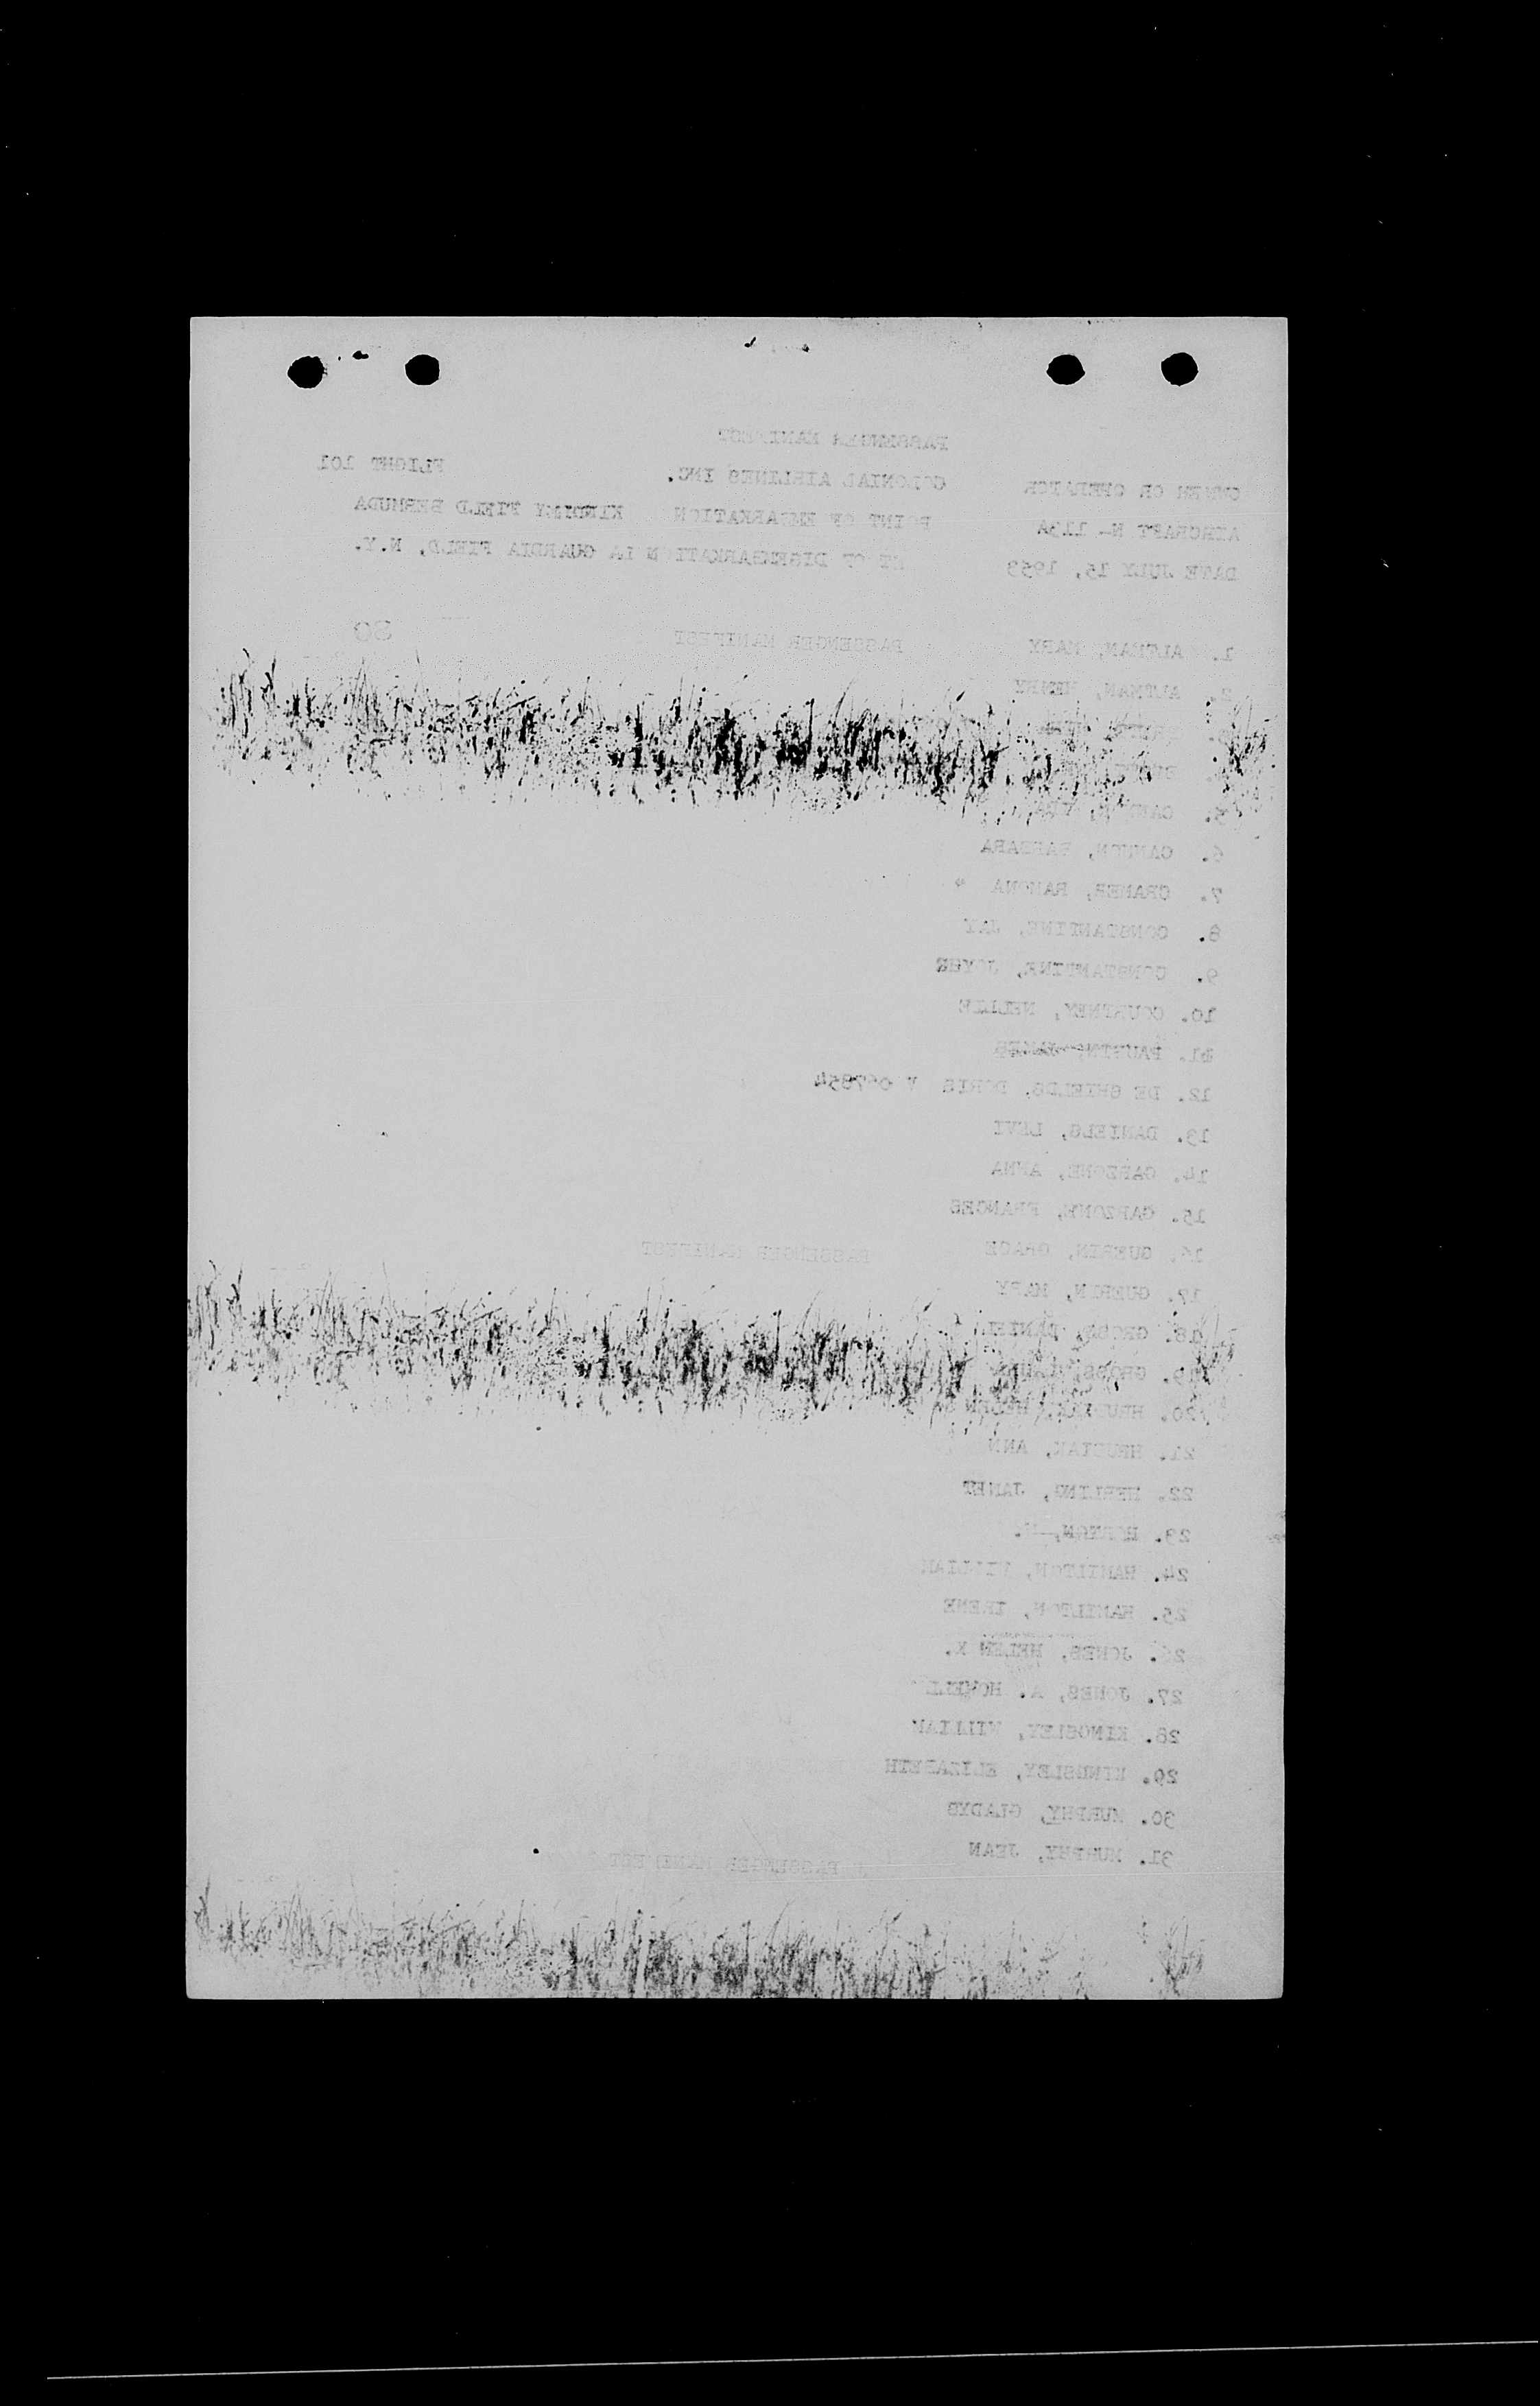 PASSENGER MANIFEST
OWNER OR OPERATOR COLONIAL AIRLINES INC. FLIGHT 101
AIRCRAFT N- 113A POINT OF EMBARKATION KINDLEY FIELD BERMUDA
DATE JULY 15, 1953 OF DISEMBARKATION LA GUARDIA FIELD, N.Y.
1. ALTMAN, MARY PASSENGER MANIFEST 30
2. ALTMAN, HENRY
5.
6. CANNON, BARBARA
7. CRAMER, RAMONA
8. CONSTANTINE, JAY
9. CONSTANTINE, JOYCE
10. COURTNEY, NELLIE
11.
12. DE SHIELDS, DORIS V 067854
13. DANIELS, LEVI
14. GARZONE, ANNA
15. GARZONE, FRANCES
16. GUERIN, GRACE PASSENGER MANIFEST
17. GUERIN, MARY
18. GROSS, DANIEL
19. GROSS,
20.
21. ANN
22. HERLING, JANET
23.
24. HAMILTON, WILLIAM
25. HAMILTON, IRENE
26. JONES, HELEN K.
27. JONES, A. HOWELL
28. KINGSLEY, WILLIAM
29. KINGSLEY, ELIZABETH
30. MURPHY, GLADYS
31. MURPHY, JEAN
PASSENGER MANIFEST